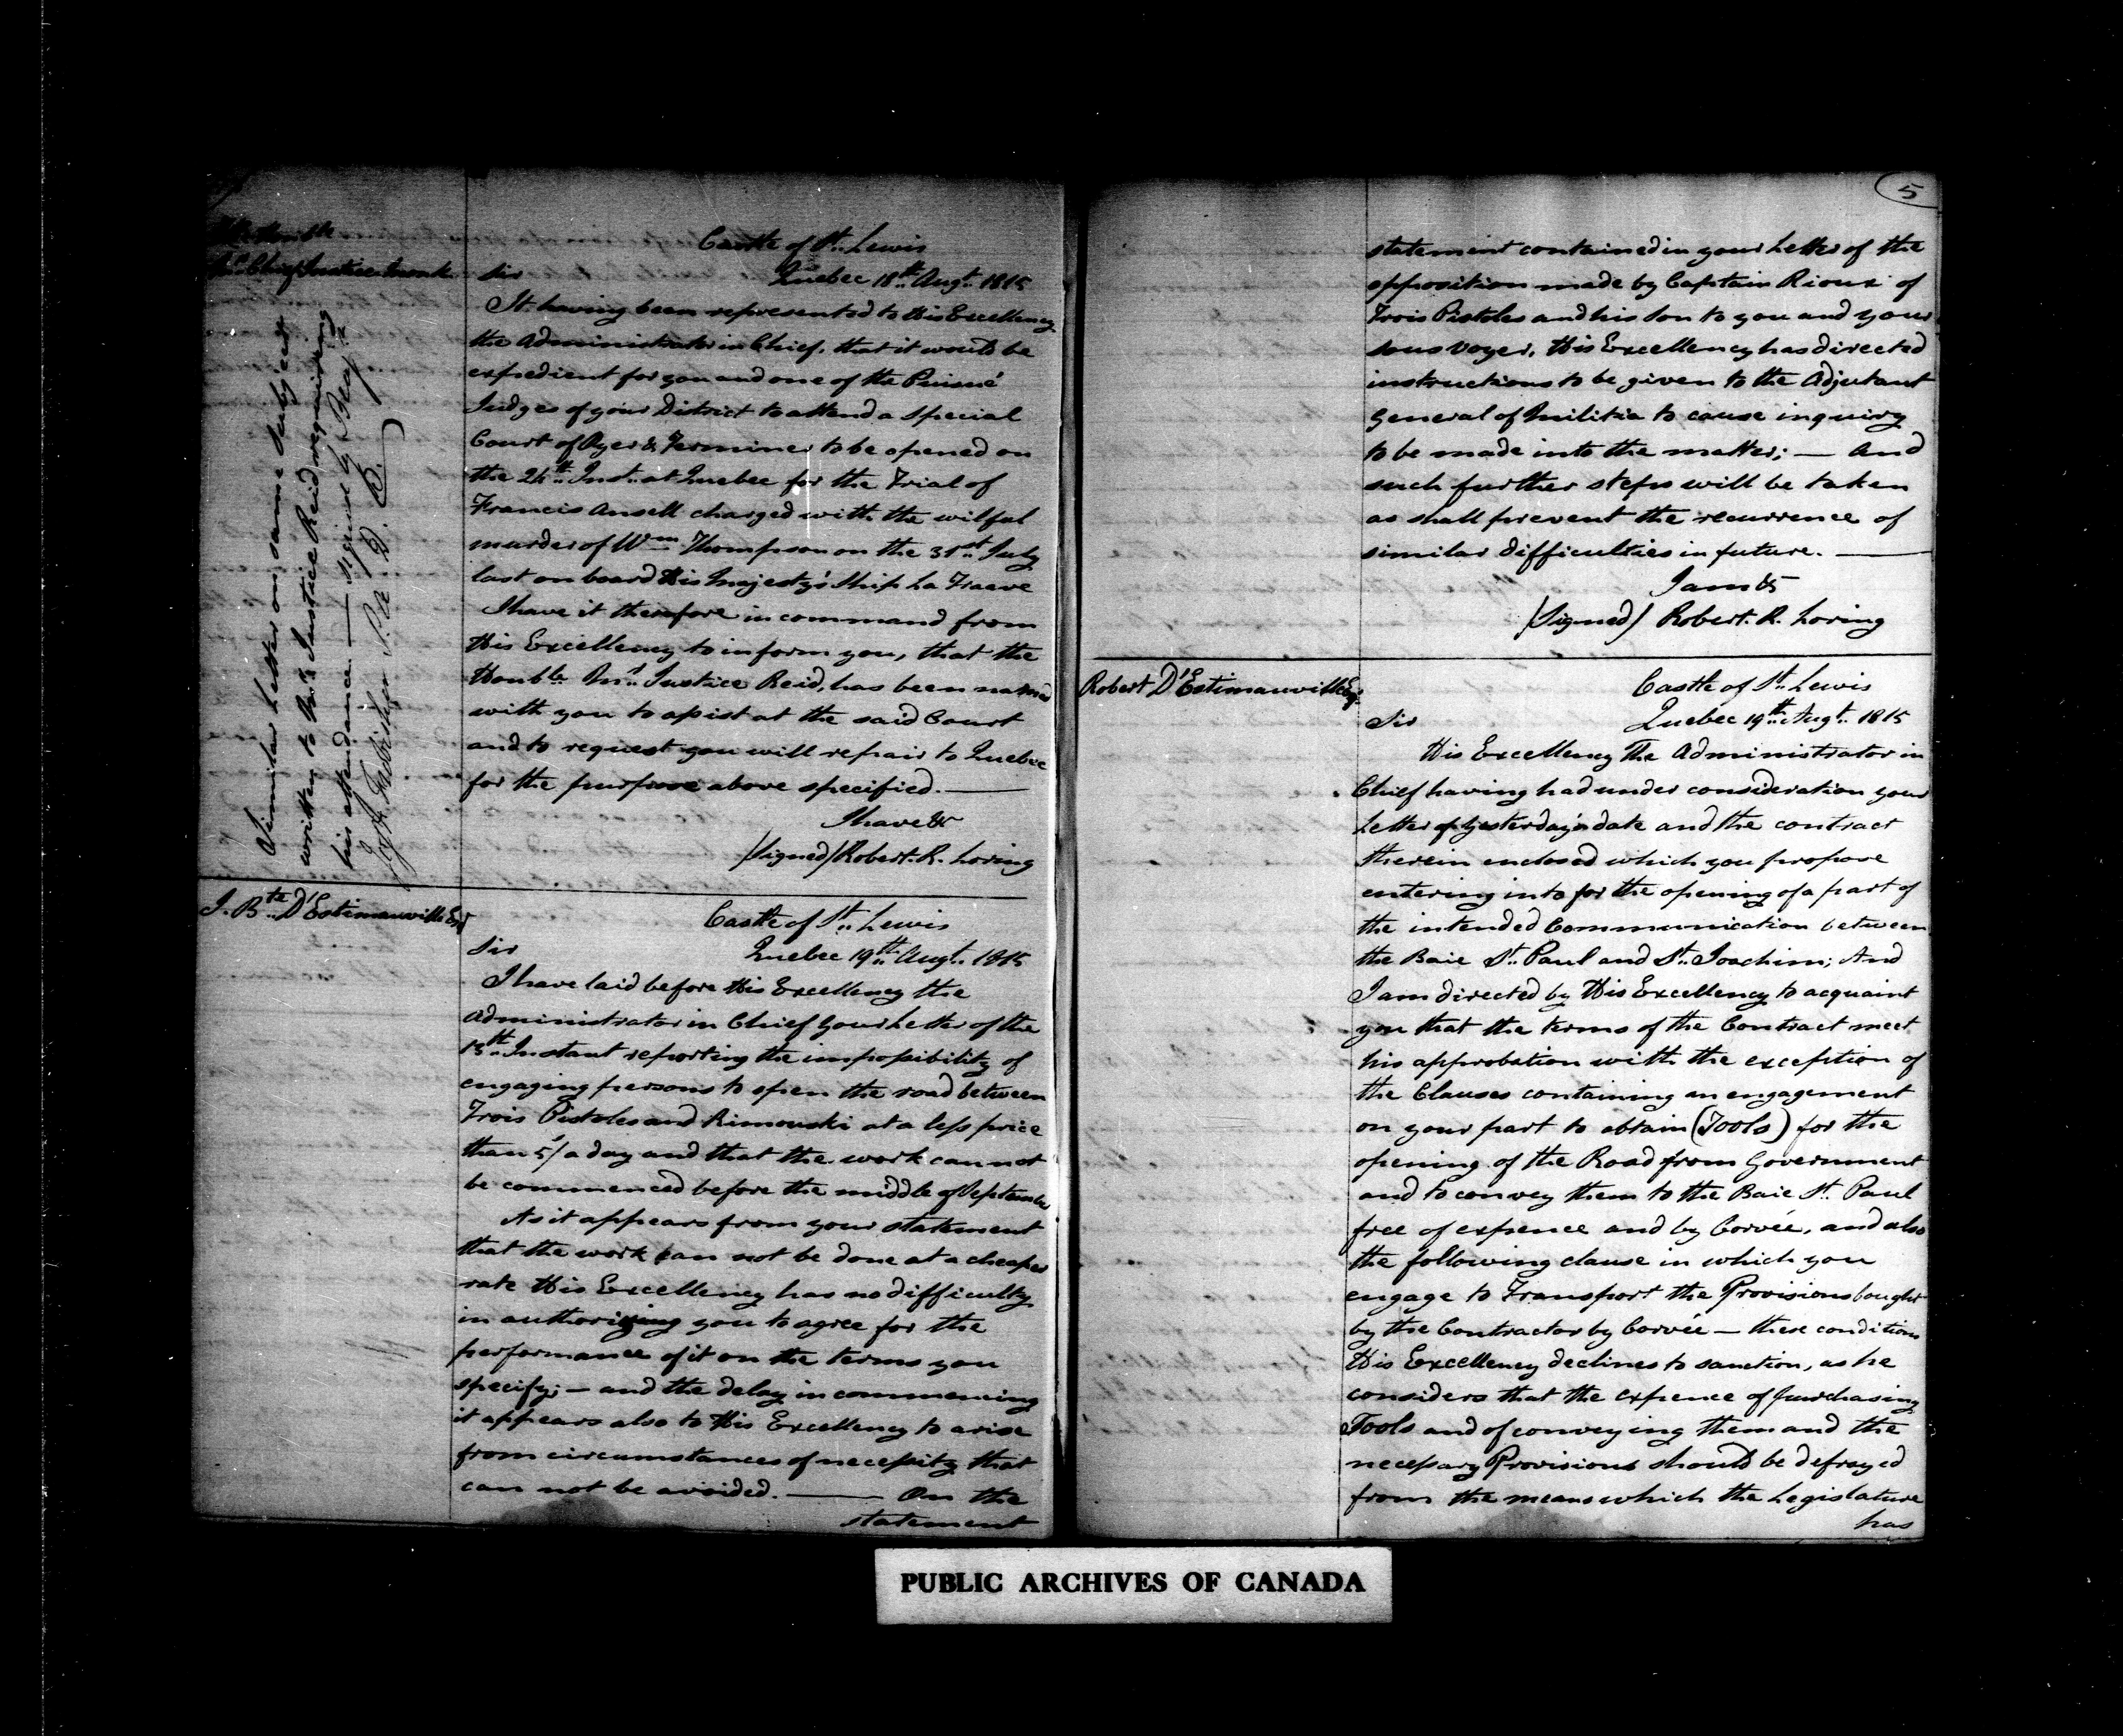 The Honble
Mr. Chief Justice Monk
Castle of St. Lewis
Quebec 18th Augt. 1815
Sir
It having been represented to His Excellency
the Administrator in Chief, that it would be
expedient for you and one of the Puisné
Judges of your District to attend a Special
Court of Oyer & Terminer to be opened on
the 24th Inst. at Quebec for the Trial of
Francis Ansell charged with the wilful
murder of Wm Thompson on the 31st July
last on board His Majesty's Ship La Traave
I have it therefore in command from
His Excellency to inform you, that the
Honble Mr. Justice Reid, has been named
with you to assist at the said Court
and to request you will repair to Quebec
for the purpose above specified. —
I have &c
(Signed) Robert. R. Loring
A similar Letter on same subject
written to Mr. Justice Reid requiring
his attendance — signed by
P. A. D. C.
J. Bte. D'Estimauville Esqr
Castle of St. Lewis
Quebec 19th Augt. 1815
Sir
I have laid before His Excellency the
Administrator in Chief your Letter of the
13th Instant reporting the impossibility of
engaging persons to open the road between
Trois Pistoles and Rimouski at a less price
than 5/ a day and that the work can not
be commenced before the middle of September
As it appears from your statement
that the work can not be done at a cheaper
rate His Excellency has no difficulty
in authorizing you to agree for the
performance of it on the terms you
specify; — and the delay in commencing
it appears also to His Excellency to arise
from circumstances of necessity that
can not be avoided. — On the
statement
5
statement contained in your Letter of the
opposition made by Captain Rioux of
Trois Pistoles and his Son to you and your
sous voyer, His Excellency has directed
instructions to be given to the Adjutant
General of Militia to cause inquiry
to be made into the matter; — And
such further steps will be taken
as shall prevent the recurrence of
similar difficulties in future. —
I am &c
(Signed) Robert. R. Loring
Robert D'Estimauville Esqr.
Castle of St. Lewis
Quebec 19th Augt. 1815
Sir
His Excellency The Administrator in
Chief having had under consideration your
Letter of yesterday's date and the contract
therein enclosed which you propose
entering into for the opening of a part of
the intended Communication between
the Baie St. Paul and St. Joachim; And
I am directed by His Excellency to acquaint
you that the terms of the Contract meet
his approbation with the exception of
the Clauses containing an engagement
on your part to obtain (Tools) for the
opening of the Road from Government
and to convey them to the Baie St. Paul
free of expence and by Corvée, and also
the following clause in which you
engage to Transport the Provisions bought
by the Contractor by Corvée — these conditions
His Excellency declines to sanction, as he
considers that the expence of purchasing
Tools and of conveying them and the
necessary Provisions should be defrayed
from the means which the Legislature
has
PUBLIC ARCHIVES OF CANADA